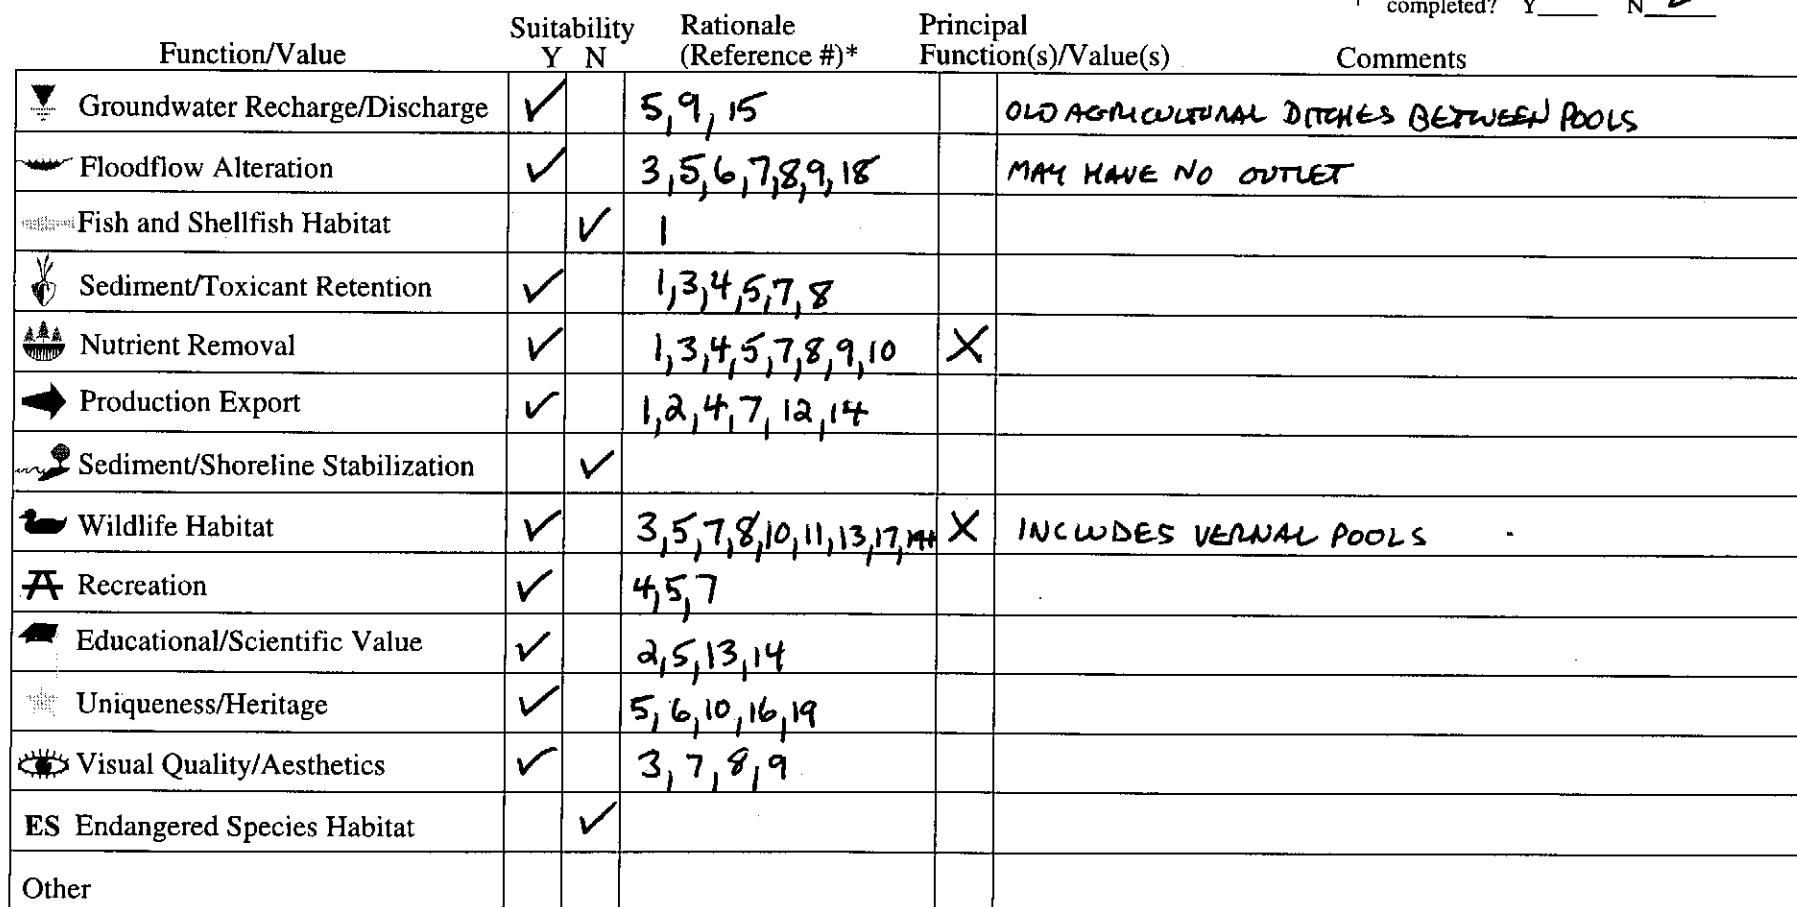 completed? Y_____ N_____
Suitability Rationale Principal
Function/Value Y N (Reference #)* Function(s)/Value(s) Comments
Groundwater Recharge/Discharge ✓ 5,9,15 OLD AGRICULTURAL DITCHES BETWEEN POOLS
Floodflow Alteration ✓ 3,5,6,7,8,9,18 MAY HAVE NO OUTLET
Fish and Shellfish Habitat ✓ 1
Sediment/Toxicant Retention ✓ 1,3,4,5,7,8
Nutrient Removal ✓ 1,3,4,5,7,8,9,10 X
Production Export ✓ 1,2,4,7,12,14
Sediment/Shoreline Stabilization ✓
Wildlife Habitat ✓ 3,5,7,8,10,11,13,17, X INCLUDES VERNAL POOLS
Recreation ✓ 4,5,7
Educational/Scientific Value ✓ 2,5,13,14
Uniqueness/Heritage ✓ 5,6,10,16,19
Visual Quality/Aesthetics ✓ 3,7,8,9
ES Endangered Species Habitat ✓
Other